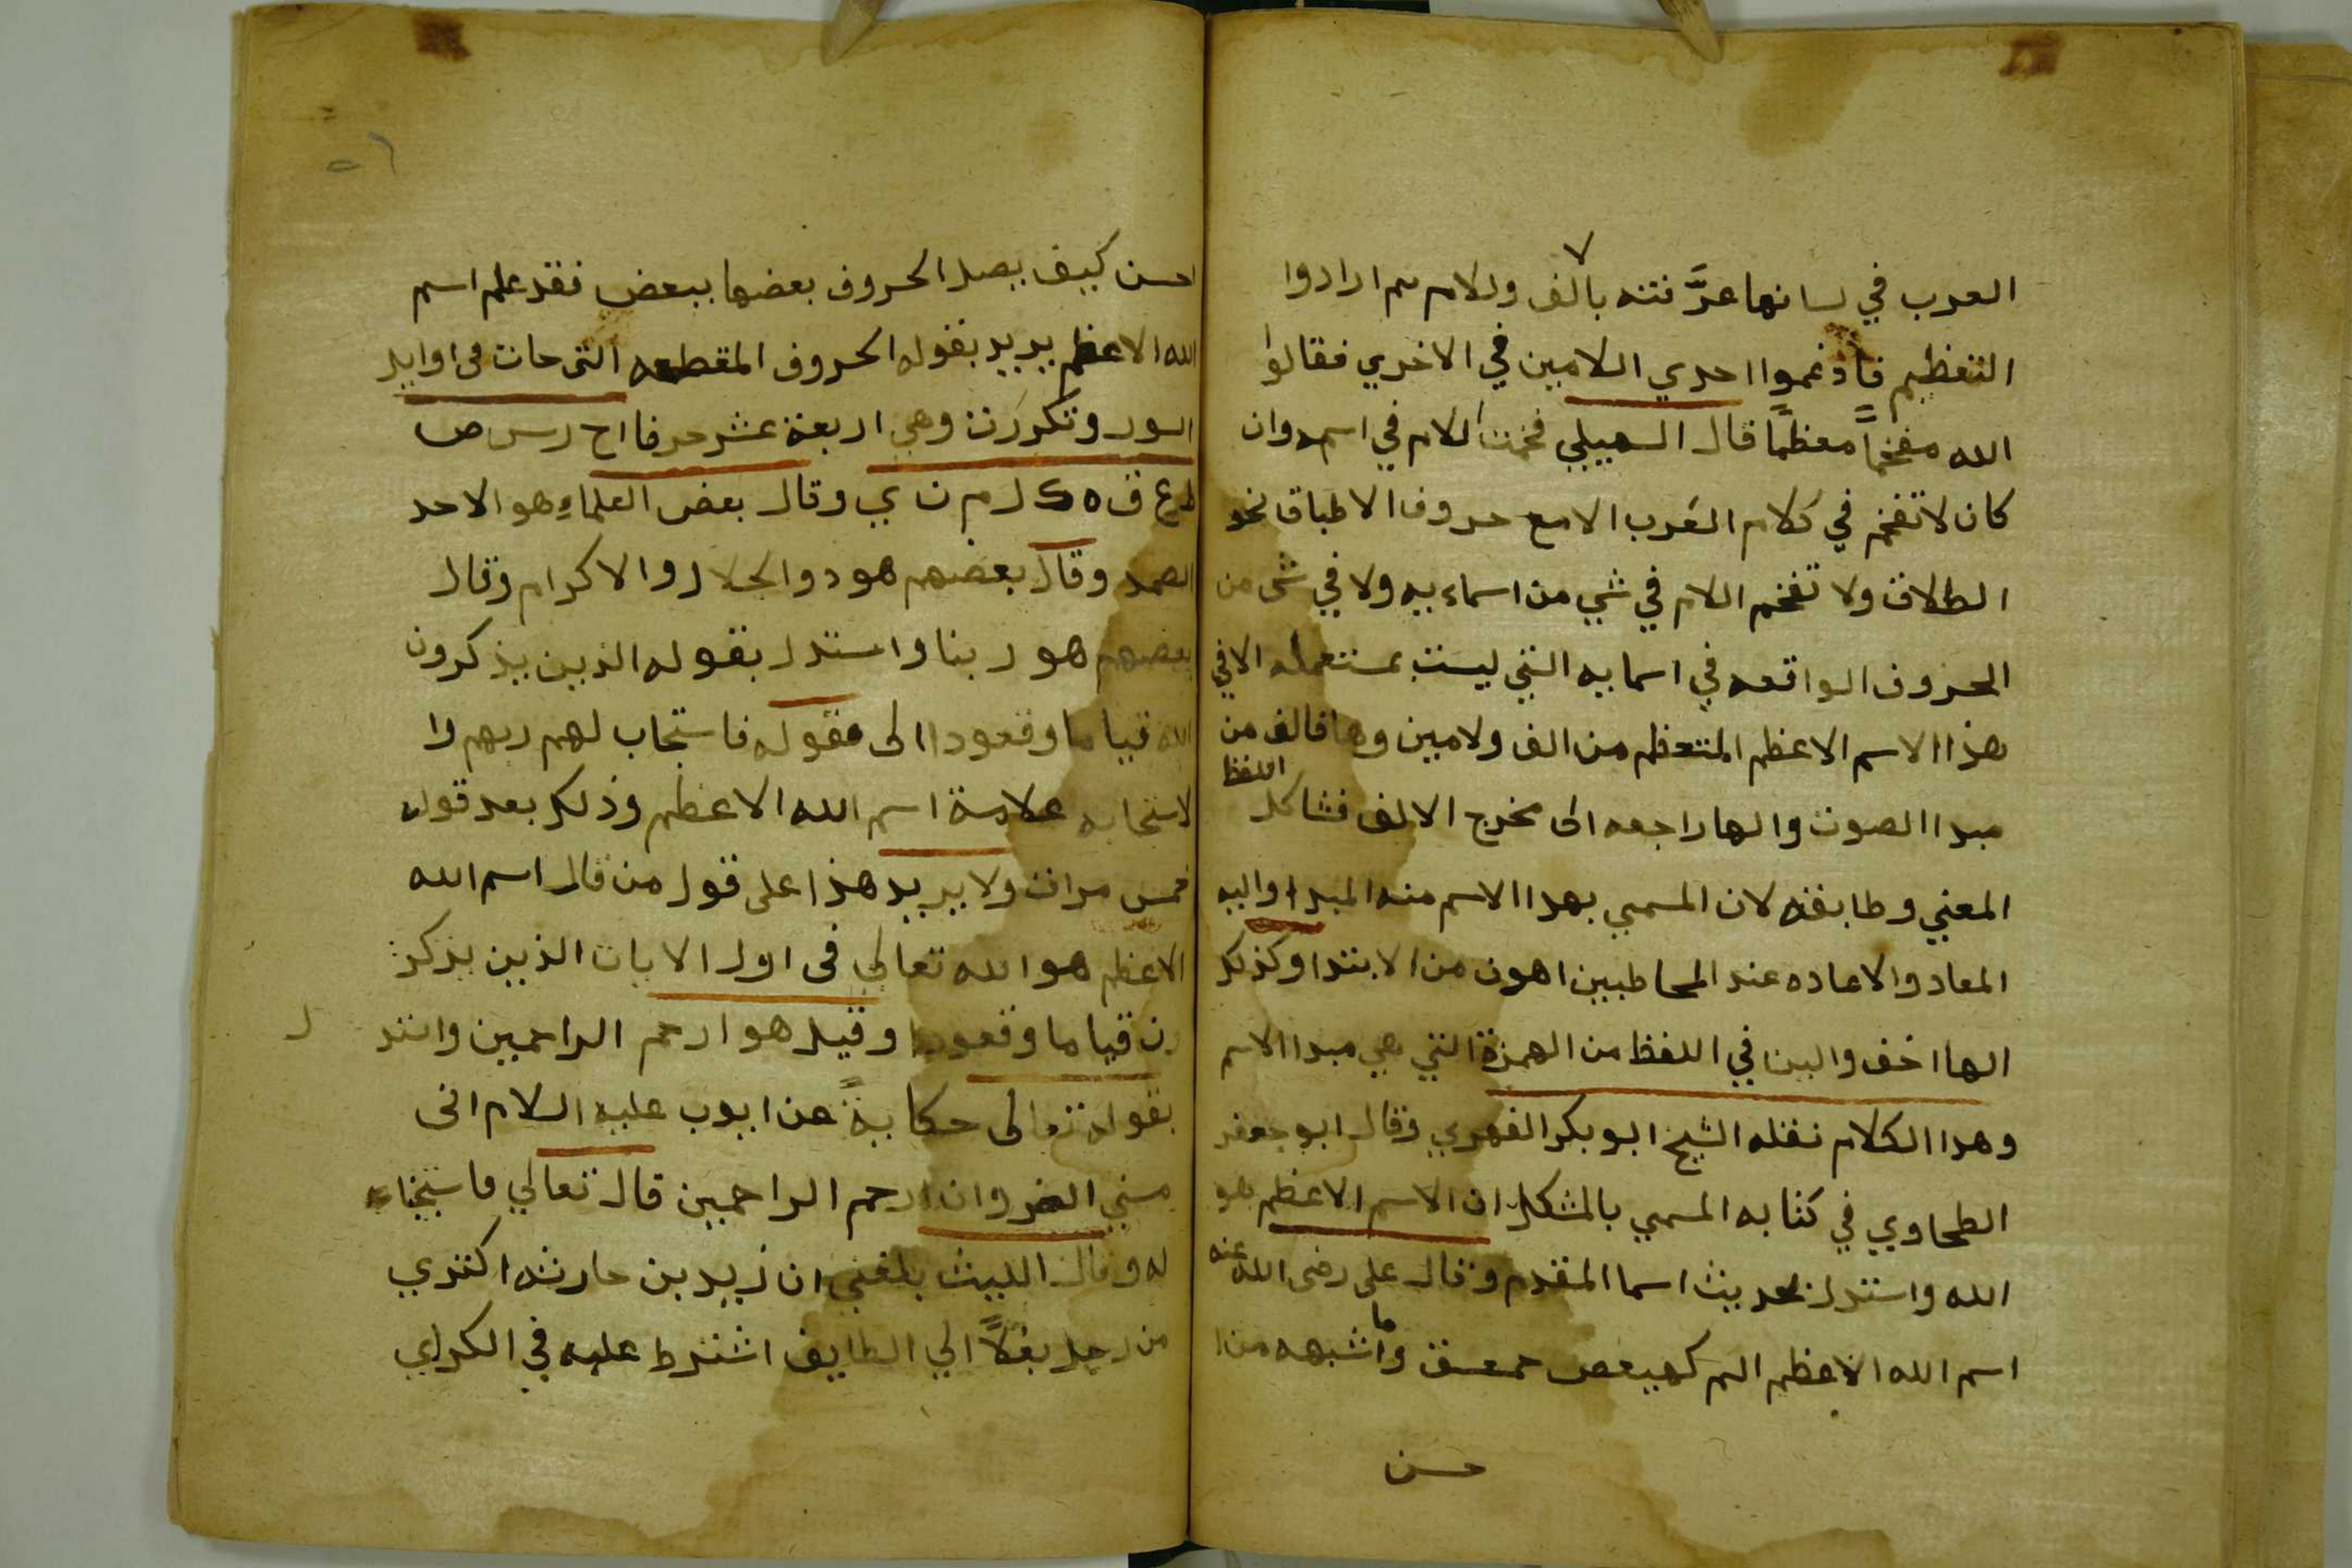 العرب في لسانها عرَّفته بالف ولام ثم ارادوا
التعظيم فأدغموا احدي اللامين في الاخري فقالوا
الله مفخماً معظماً قال السهيلي فخمت اللام في اسمه وان
كان لا تفخم في كلام العَرب الا مع حروف الاطباق نحو
الطلاق ولا تفخم اللام في شي من اسماءيه ولا في شي من
الحروف الواقعه في اسمايه التي ليست بمستعمله الا في
هذا الاسم الاعظم المنتظم من الف ولامين وها فالف من
مبدا الصوت والها راجعه الى مخرج الالف فشاكل اللفظ
المعني وطابقه لان المسمي بهدا الاسم منه المبدا واليه
المعاد والاعاده عند المخاطبين اهون من الابتدا وكذلك
الها اخف والين في اللفظ من الهمزة التي هي مبدا الاسم
وهدا الكلام نقله الشيخ ابو بكر الفهري وقال ابو جعفر
الطحاوي في كتابه المسمي بالمشكل ان الاسم الاعظم هو
الله واستدل بحديث اسما المقدم وقال على رضى الله عنه
اسم الله الاعظم الم كهيعص حمعسق وما اشبهه من ا
حسن
احسن كيف يصل الحروف بعضها ببعض فقد علم اسم
الله الاعظم يريد بقوله الحروف المقطعه التي جات فى اوايل
السور وتكررت وهي اربعة عشر حرفا اح رس ص
ط ع ق ه ك ل م ن ي وقال بعض العلماءِ هو الاحد
الصمد وقال بعضهم هو دو الجلال والاكرام وقال
بعضهم هو ربنا واستدل بقوله الذين يذكرون
الله قياما وقعودا الى قوله فاستجاب لهم ربهم وا
لاستجابه علامة اسم الله الاعظم وذلك بعد قوله
خمس مرات ولا يريد هذا على قول من قال اسم الله
الاعظم هو الله تعالي فى اول الايات الذين يذكر
ون قياما وقعودا وقيل هو ارحم الراحمين واستد ل
بقوله تعالى حكايةً عن ايوب عليه السلام انى
مسني الضر وانت ارحم الراحمين قال تعالي فاستجبنا
له وقال الليث بلغني ان زيد بن حارثه اكتري
من رجل بغلاً الي الطايف اشترط عليه في الكراي